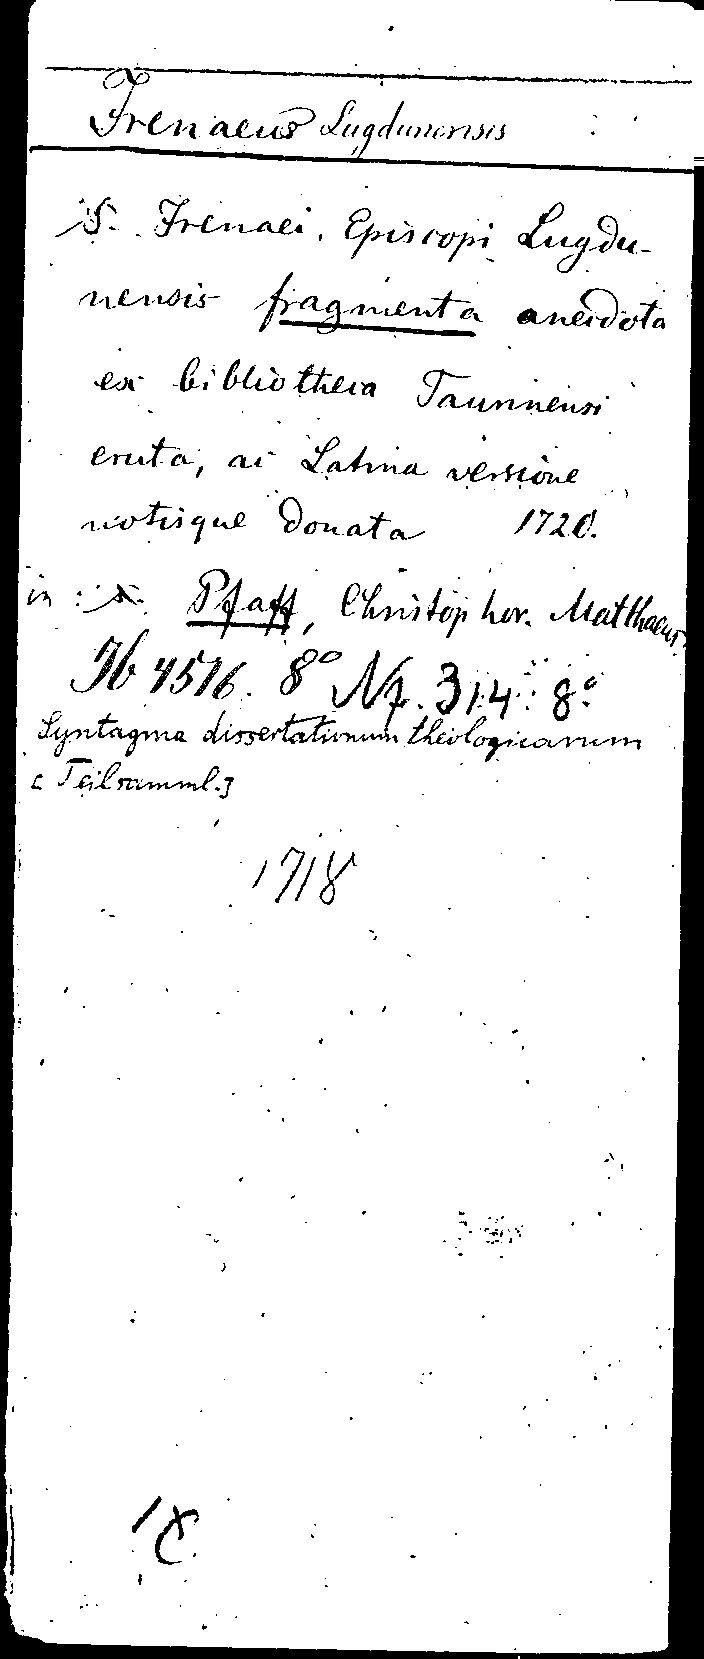 Irenaeus Lugdunensis
S. Irenaei, Episcopi Lugdu-
nensis fragmenta anecdota
ex bibliotheca Taurinensi
eruta, ac Latina versione
notisque donata 1720.
in: s. Pfaff, Christophor. Matthaeus.
8° Nf. 314: 8°
Syntagma dissertationum theologicarum
[Teilsamml.]
1718